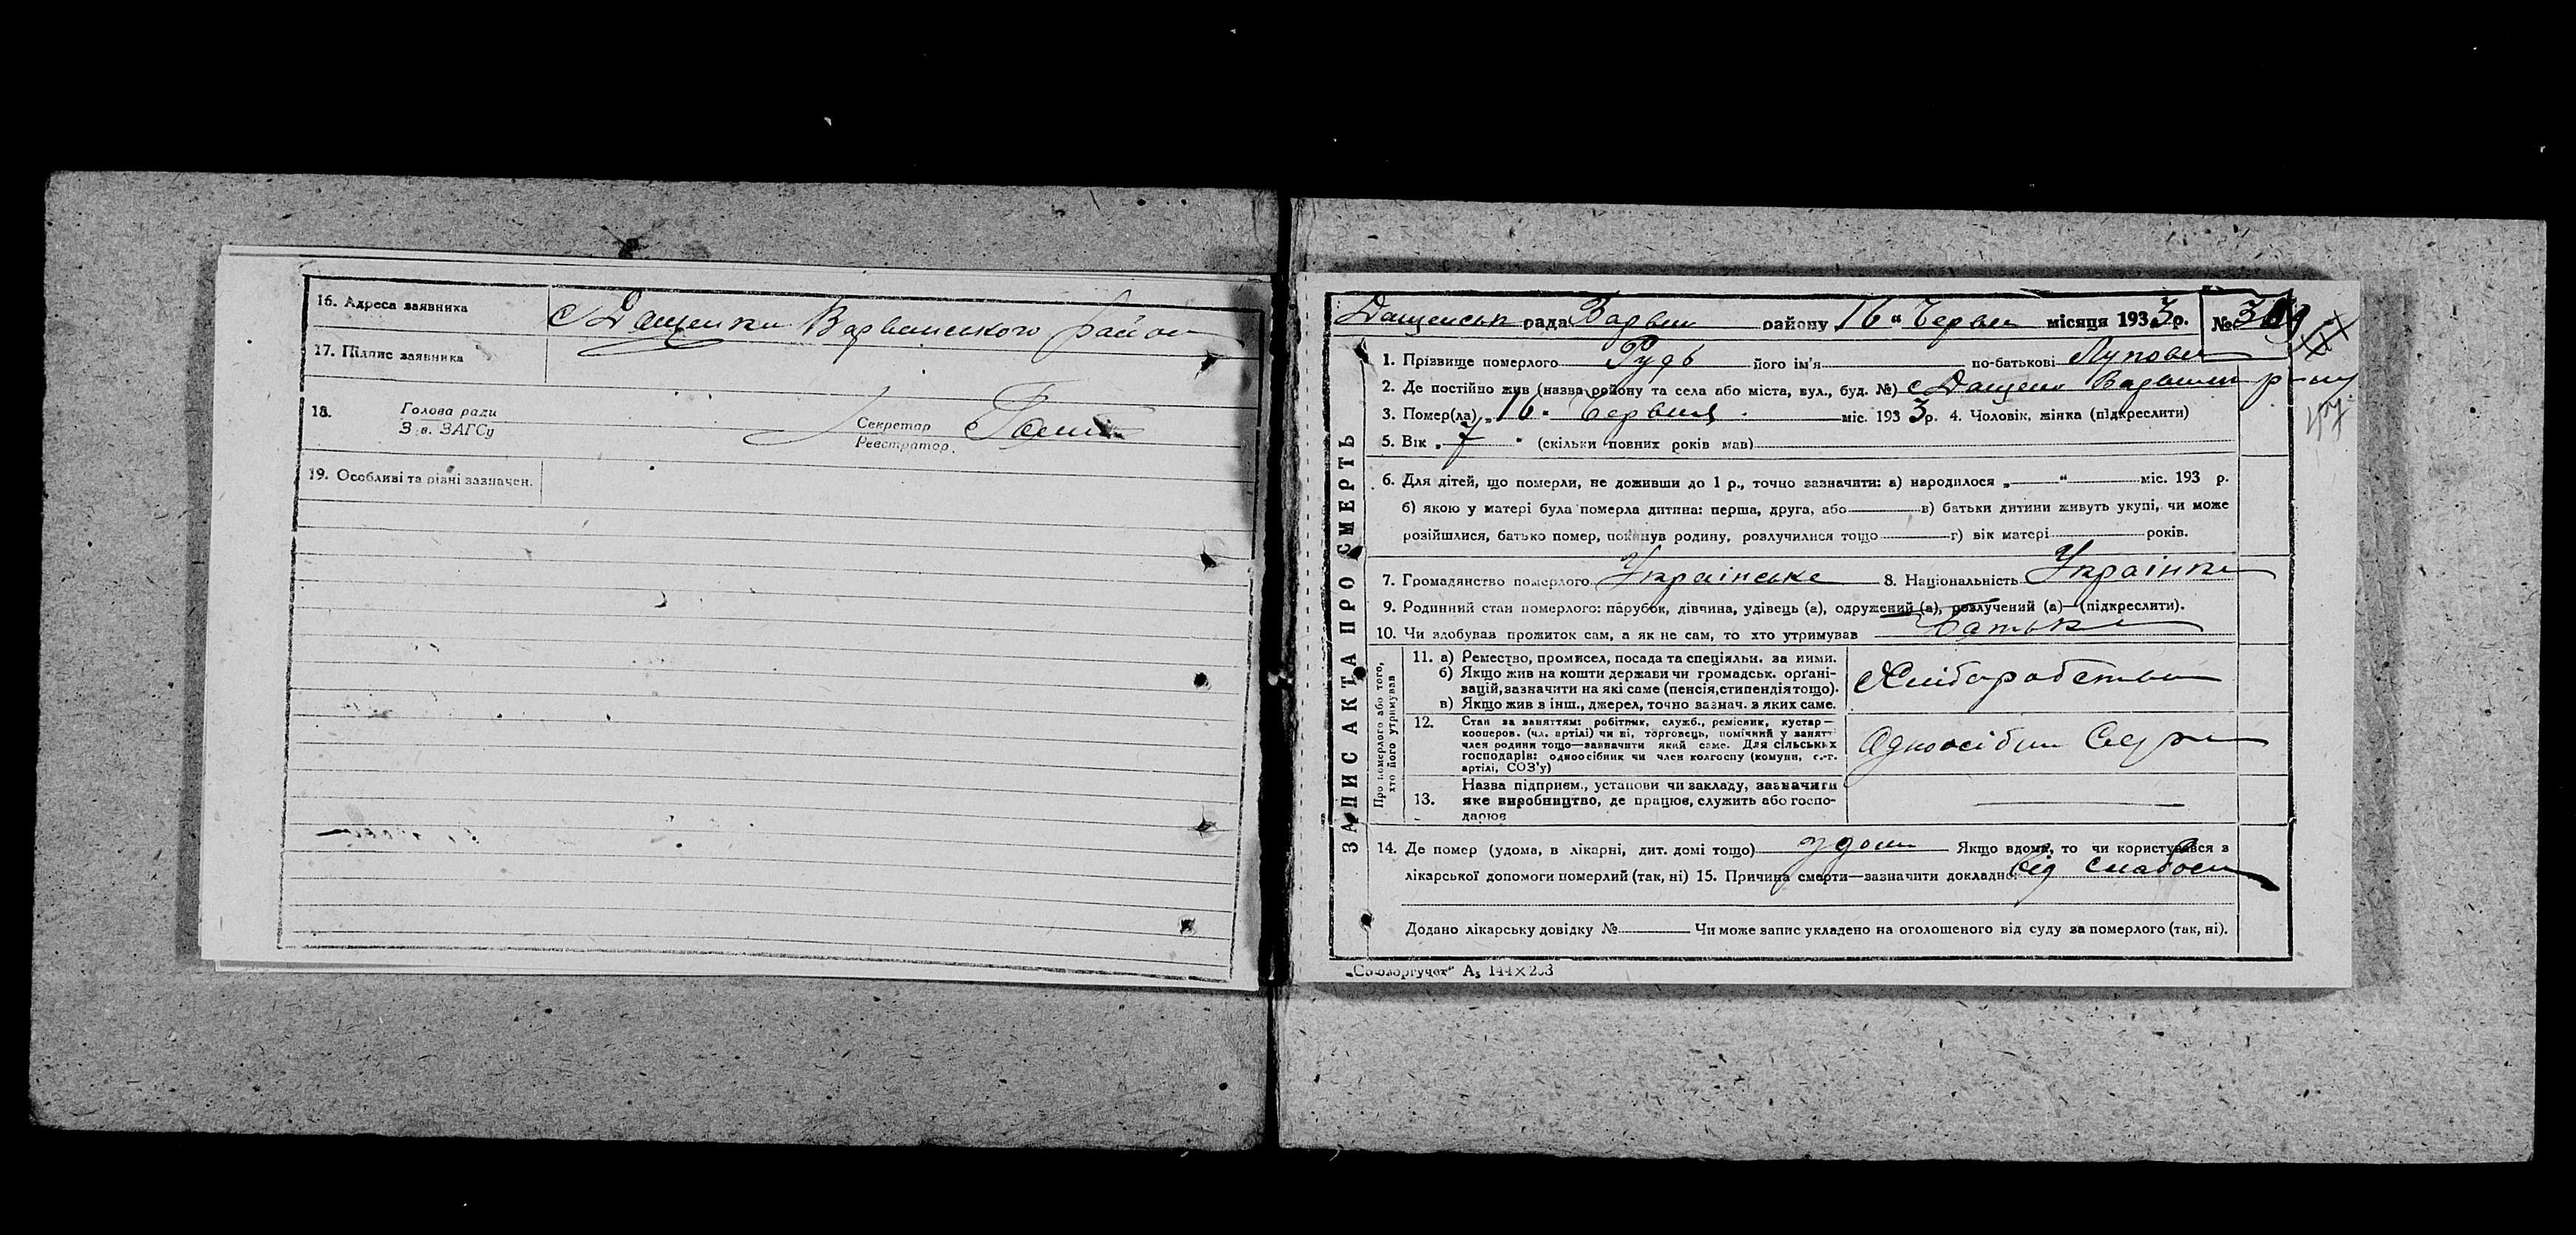 16. Адреса заявника с Дащенки Варвинського район
17. Підпис заявника
18. Голова ради
З в. ЗАГСу
Секретар
Реєстратор.
19. Особливі та різні зазначен.
ЗАПИС АКТА ПРО СМЕРТЬ
Дащенськ рада Варвин району 16 " Червн місяця 1933 р. №
1. Прізвище померлого Рудь його ім'я по-батькові
2. Де постійно жив (назва району та села або міста, вул., буд. №) с Дащенк Варвинск р-ну
3. Помер(ла) „ 16 " Червня міс. 1933 р. 4. Чоловік, жінка (підкреслити)
5. Вік „ 7 " (скільки повних років мав)
6. Для дітей, що померли, не доживши до 1 р., точно зазначити: а) народилося „ " міс. 193 р.
б) якою у матері була померла дитина: перша, друга, або в) батьки дитини живуть укупі, чи може
розійшлися, батько помер, покинув родину, розлучилися тощо г) вік матері років.
7. Громадянство померлого Українське 8. Національність Українка
9. Родинний стан померлого: парубок, дівчина, удівець (а), одружений (а), розлучений (а)—(підкреслити).
10. Чи здобував прожиток сам, а як не сам, то хто утримував Батьки
Про померлого або того,
хто його утримував
11. а) Ремество, промисел, посада та спеціяльн. за ними.
б) Якщо жив на кошти держави чи громадськ. органі-
зацій, зазначити на які саме (пенсія, стипендія тощо).
в) Якщо жив з інш., джерел, точно зазнач. з яких саме.
Хліборобство
12. Стан за заняттям: робітник, служб., ремісник, кустар—
кооперов. (чл. артілі) чи ні, торговець, помічний у занятт
член родини тощо—зазначити який саме. Для сільських
господарів: одноосібник чи член колгоспу (комуни, с.-г.
артілі, СОЗ'у)
Одноосібни
13. Назва підприєм., установи чи закладу, зазначити
яке виробництво, де працює, служить або госпо-
дарює
14. Де помер (удома, в лікарні, дит. домі тощо) удома Якщо вдома, то чи користувався з
лікарської допомоги померлий (так, ні) 15. Причина смерти—зазначити докладно від слабост
Додано лікарську довідку № Чи може запис укладено на оголошеного від суду за померлого (так, ні).
„Союзоргучет" А₅ 144×203